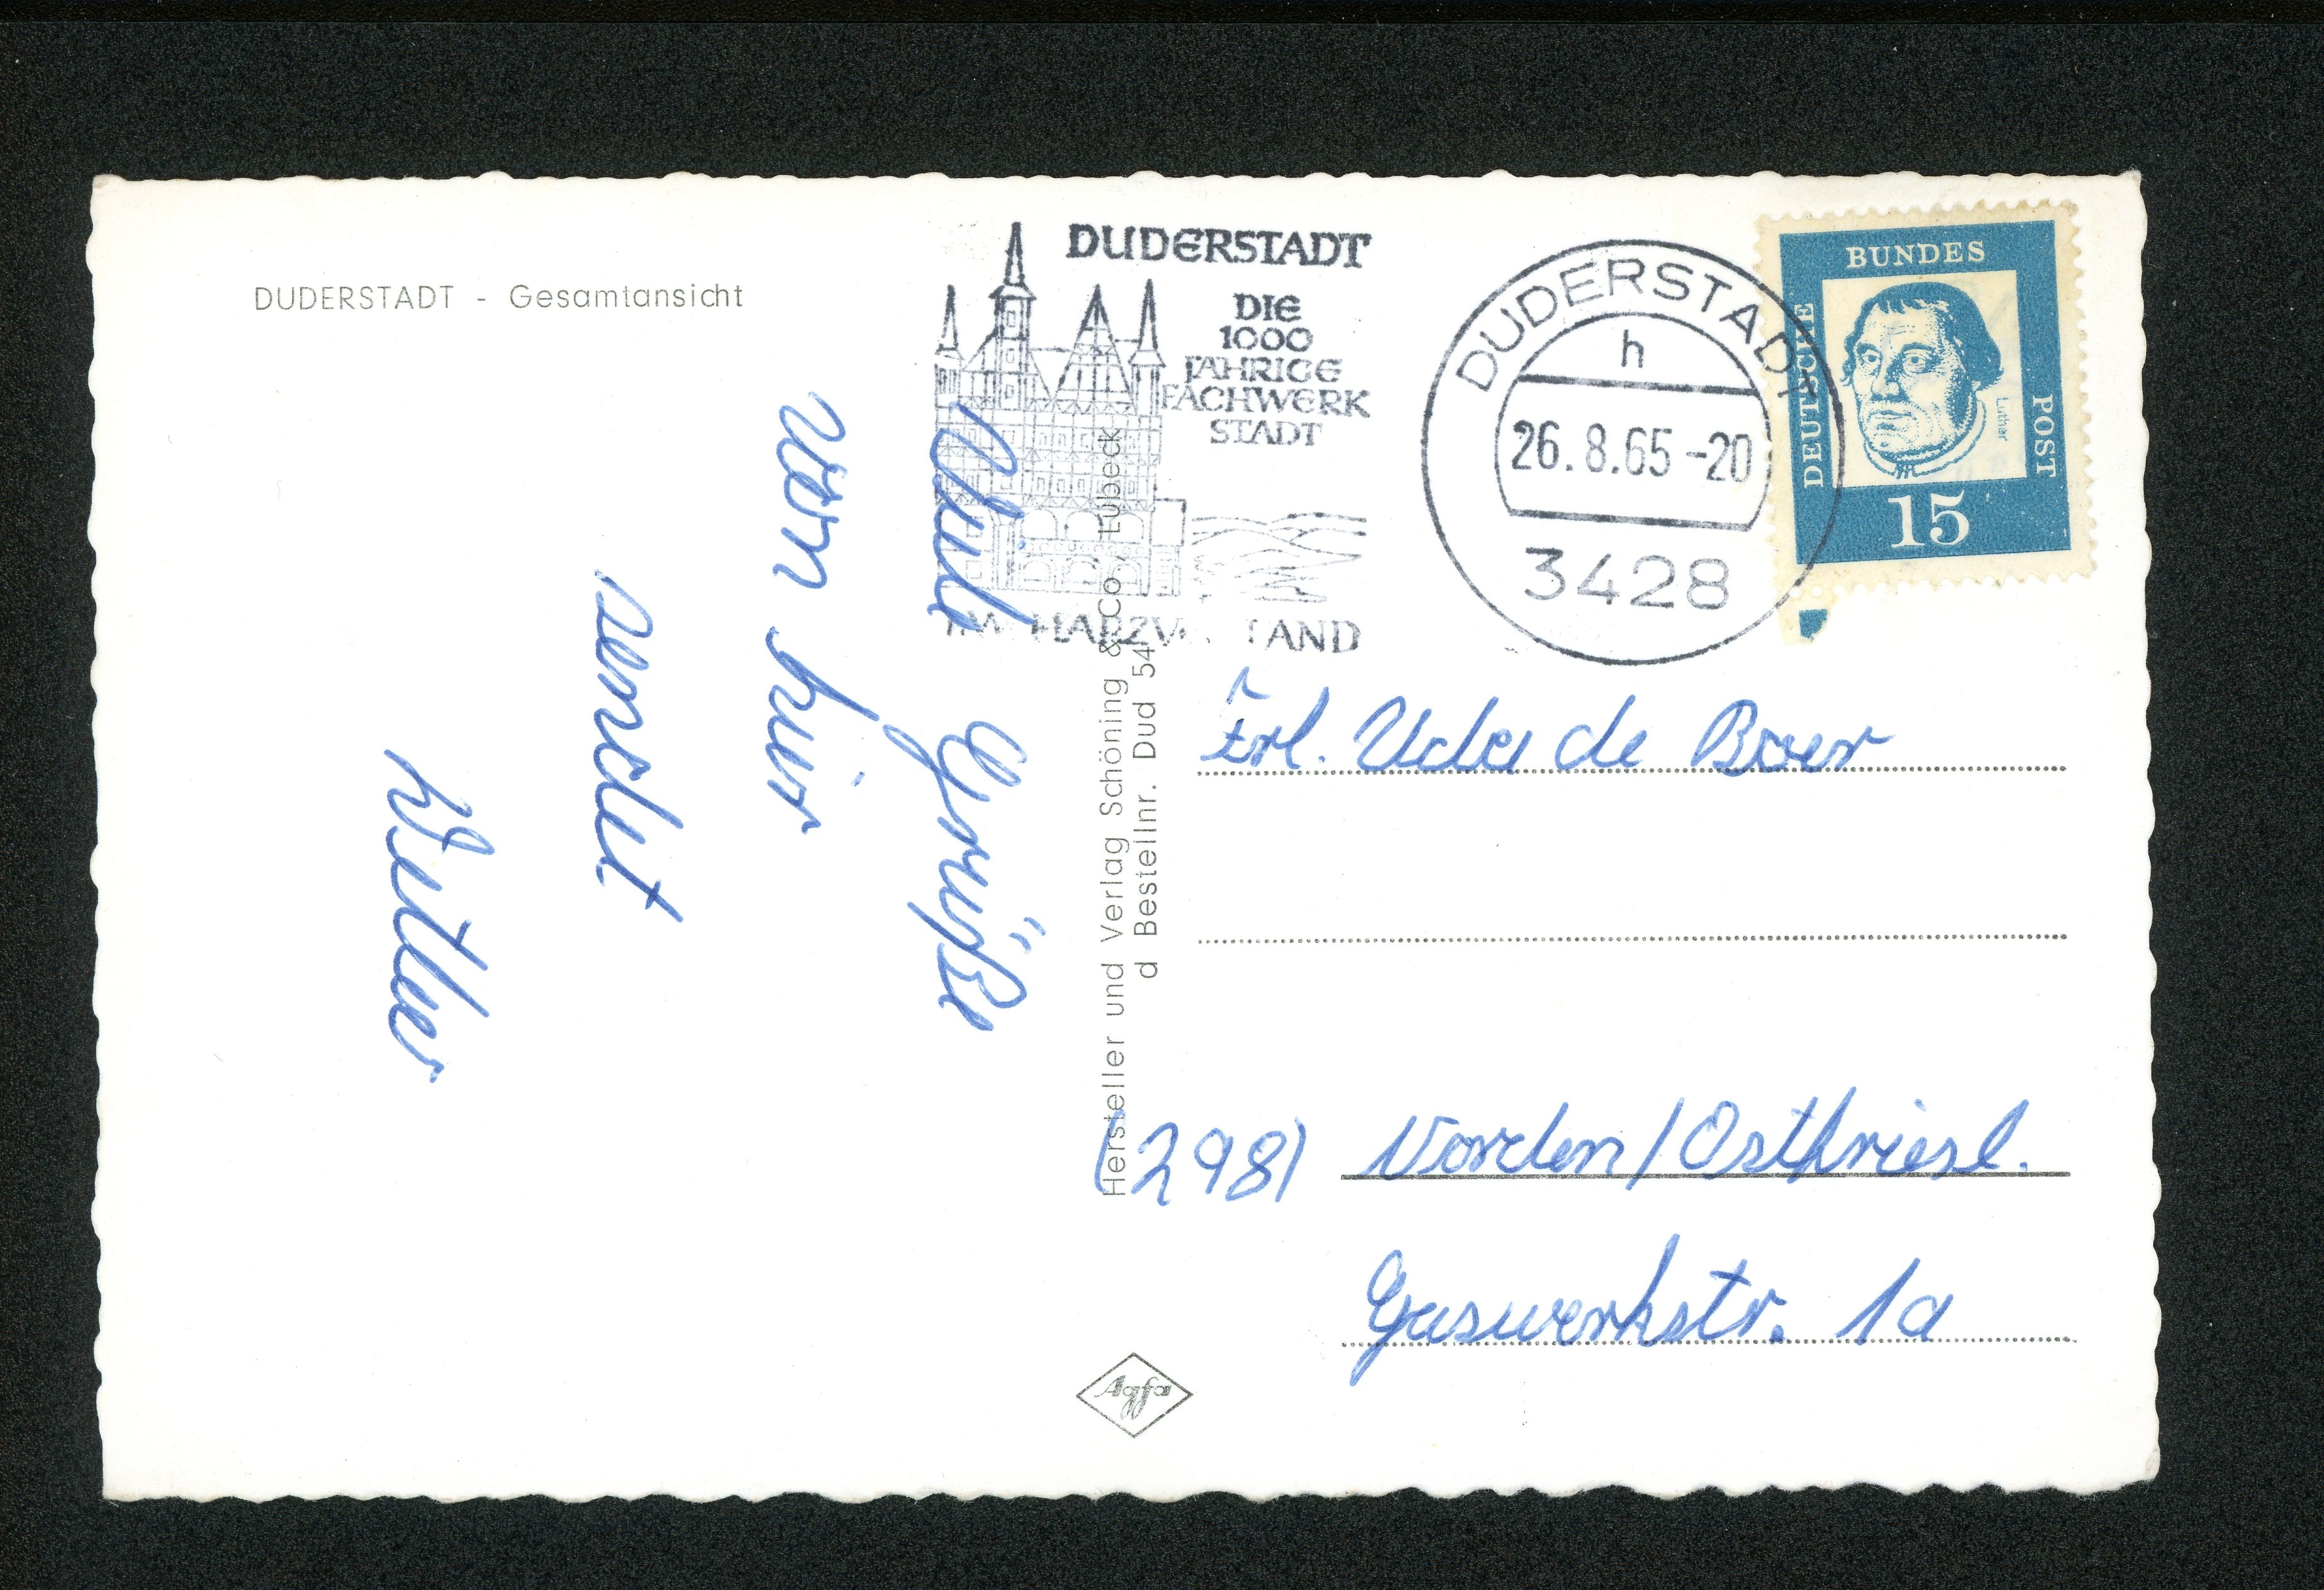 DUDERSTADT - Gesamtansicht
Viele Grüße
von hier
sendet
DUDERSTADT
DIE
1000
JÄHRIGE
FACHWERK
STADT
DUDERSTADT
h
26.8.65-20
3428
DEUTSCHE
BUNDES
POST
Luther
15
Hersteller und Verlag Schöning & Co., Lübeck
d Bestellnr. Dud 54
Frl. de Boer
(298) Norden/Ostfriesl.
Gaswerkstr. 1a
Agfa